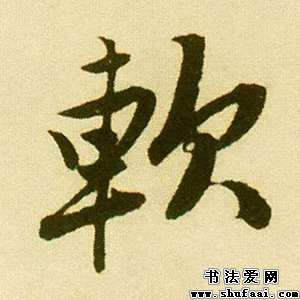 軟
书法爱网
www.shufaai.com